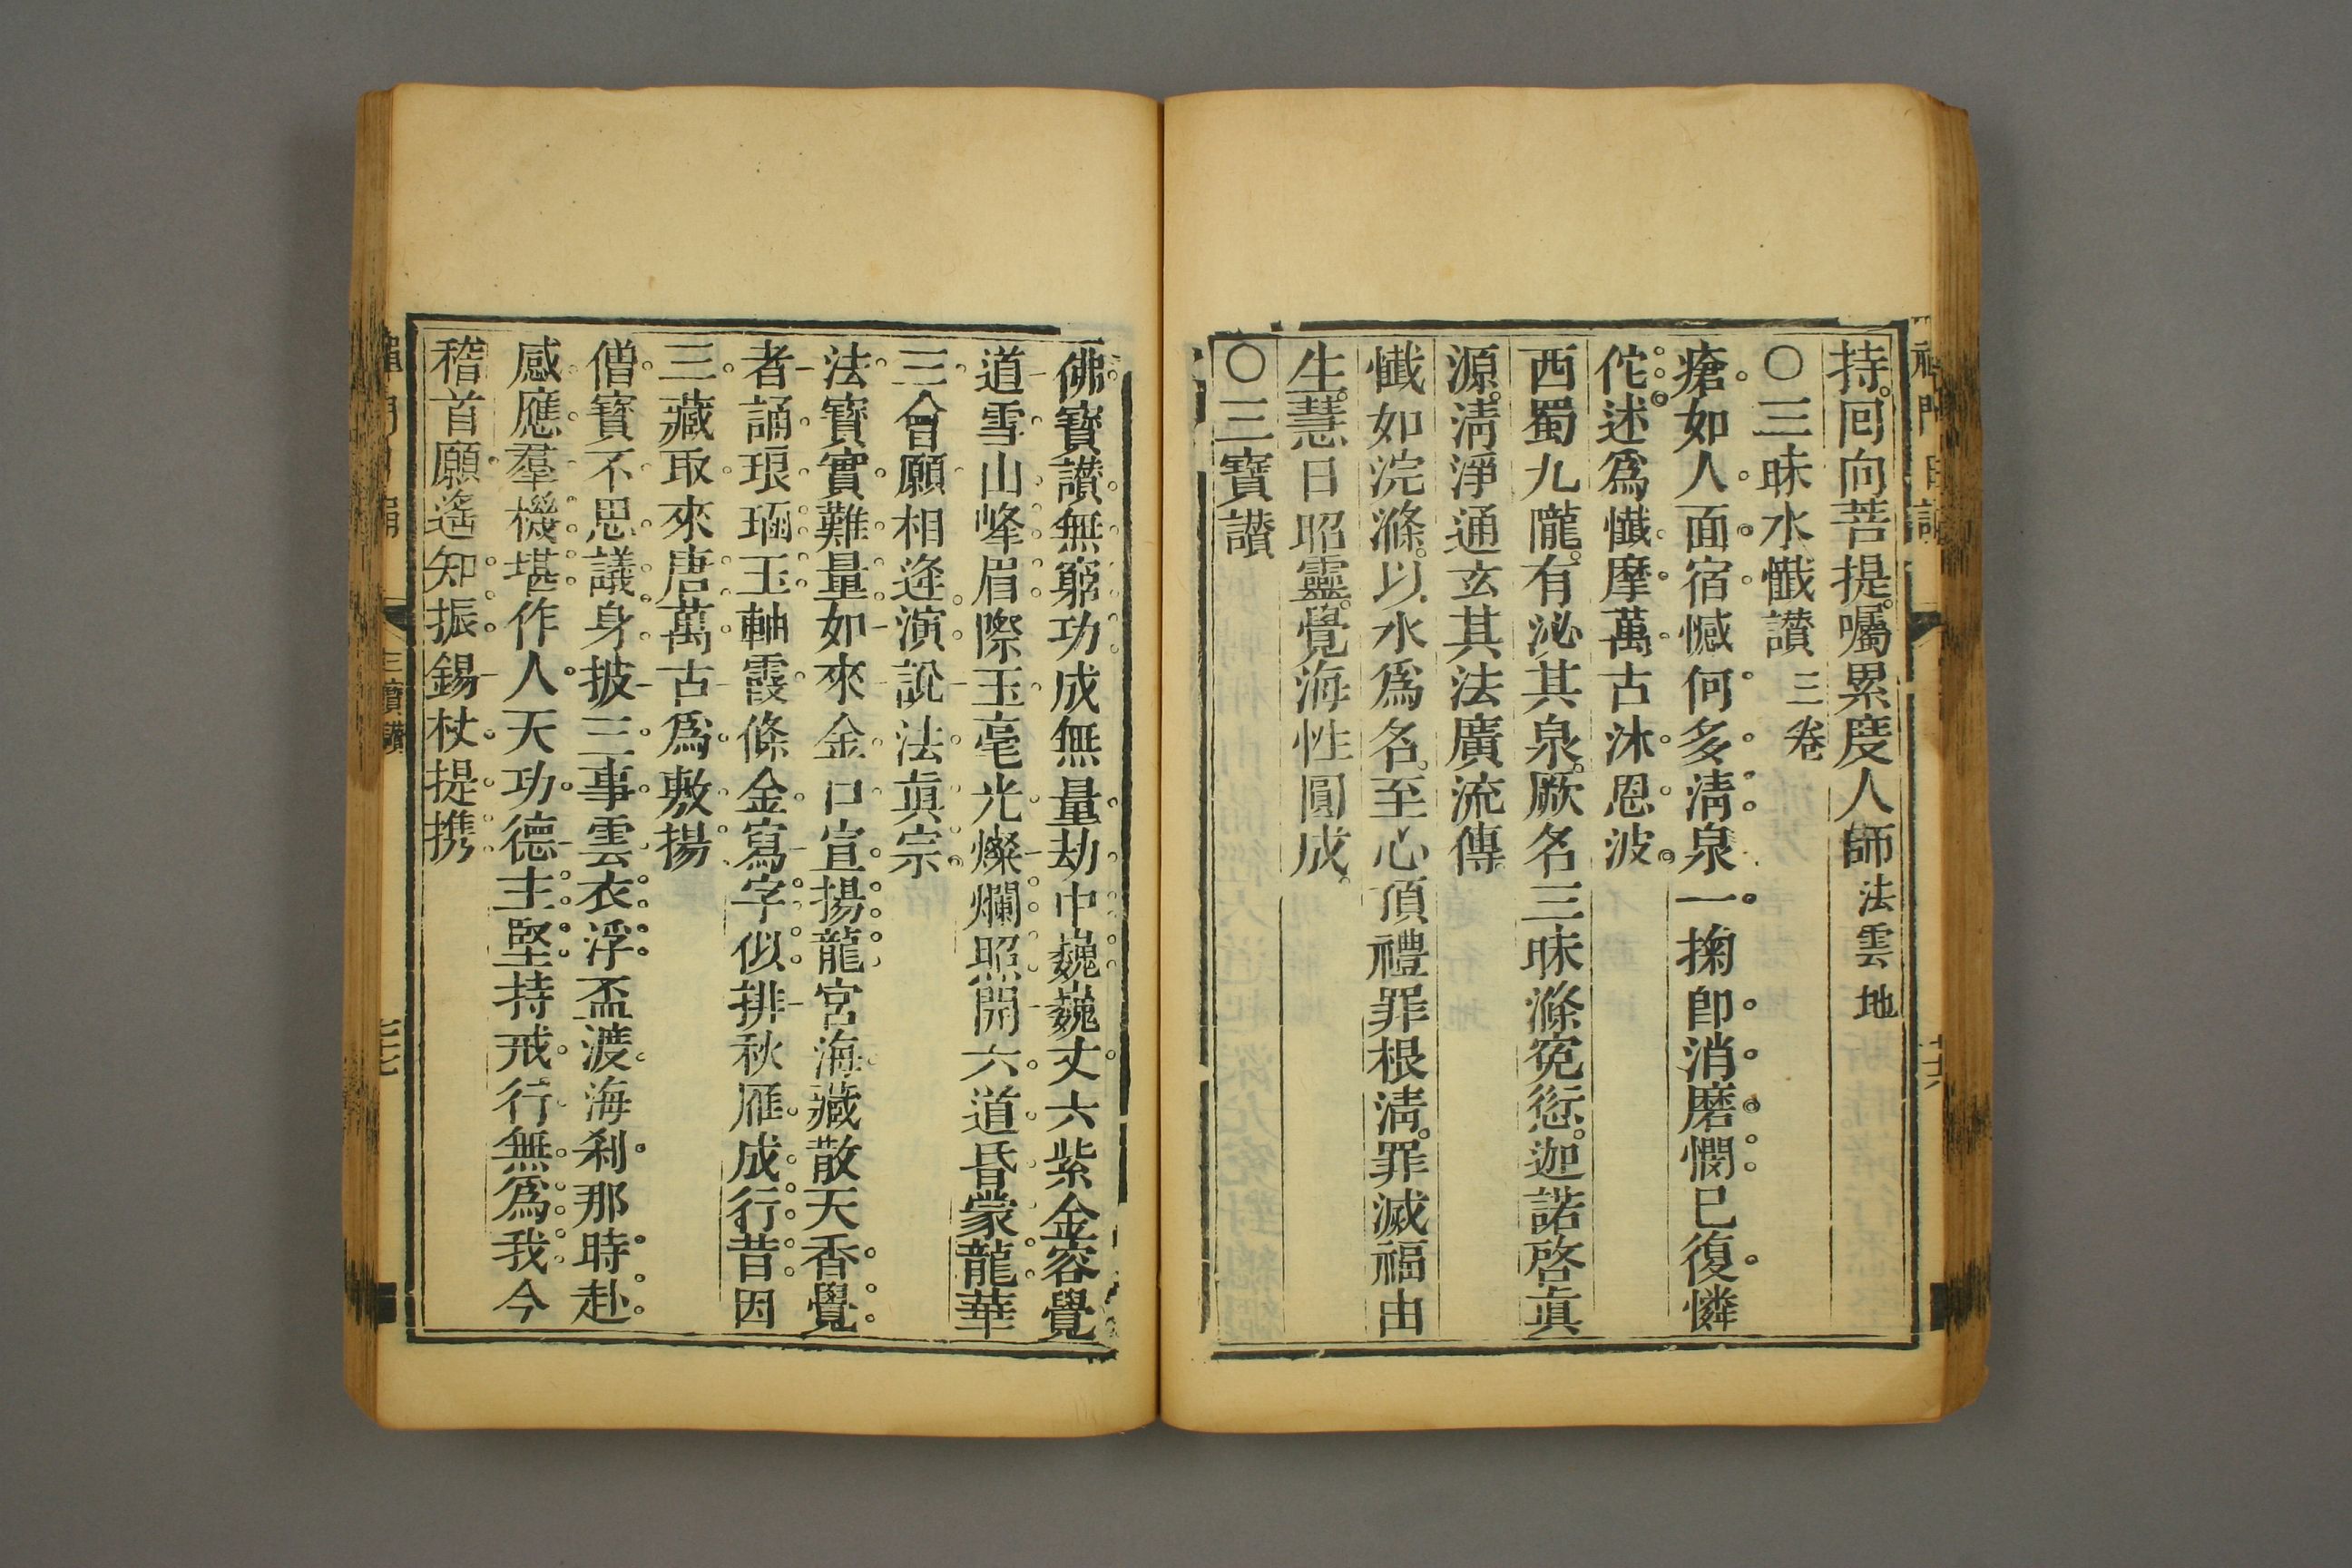 持。回向菩提。囑累度人師 法雲地
〇三昧水懺讚 三卷
瘡如人面宿憾何多清泉一掬卽消磨憫已復憐
佗述爲懺摩萬古沐恩波
西蜀九隴。有泌其泉。厥名三昧滌寃愆。迦諾啓眞
源。淸淨通玄其法廣流傳
懺如浣滌。以水爲名。至心頂禮罪根淸。罪滅福由
生。慧日昭靈。覺海性圓成。
〇三寶讃
佛寶讃無窮功成無量劫中巍巍丈六紫金容覺
道雪山峰眉際玉毫光燦爛照開六道昏蒙龍華
三會願相逢演說法眞宗
法寶實難量如來金口宣揚龍宮海藏散天香覺
者誦琅函玉軸霞條金寫字似排秋雁成行昔因
三藏取來唐萬古爲敷揚
僧寶不思議身披三事雲衣浮盃渡海刹那時赴
感應羣機堪作人天功德主堅持戒行無爲我今
稽首願遙知振錫杖提携
三寶讃